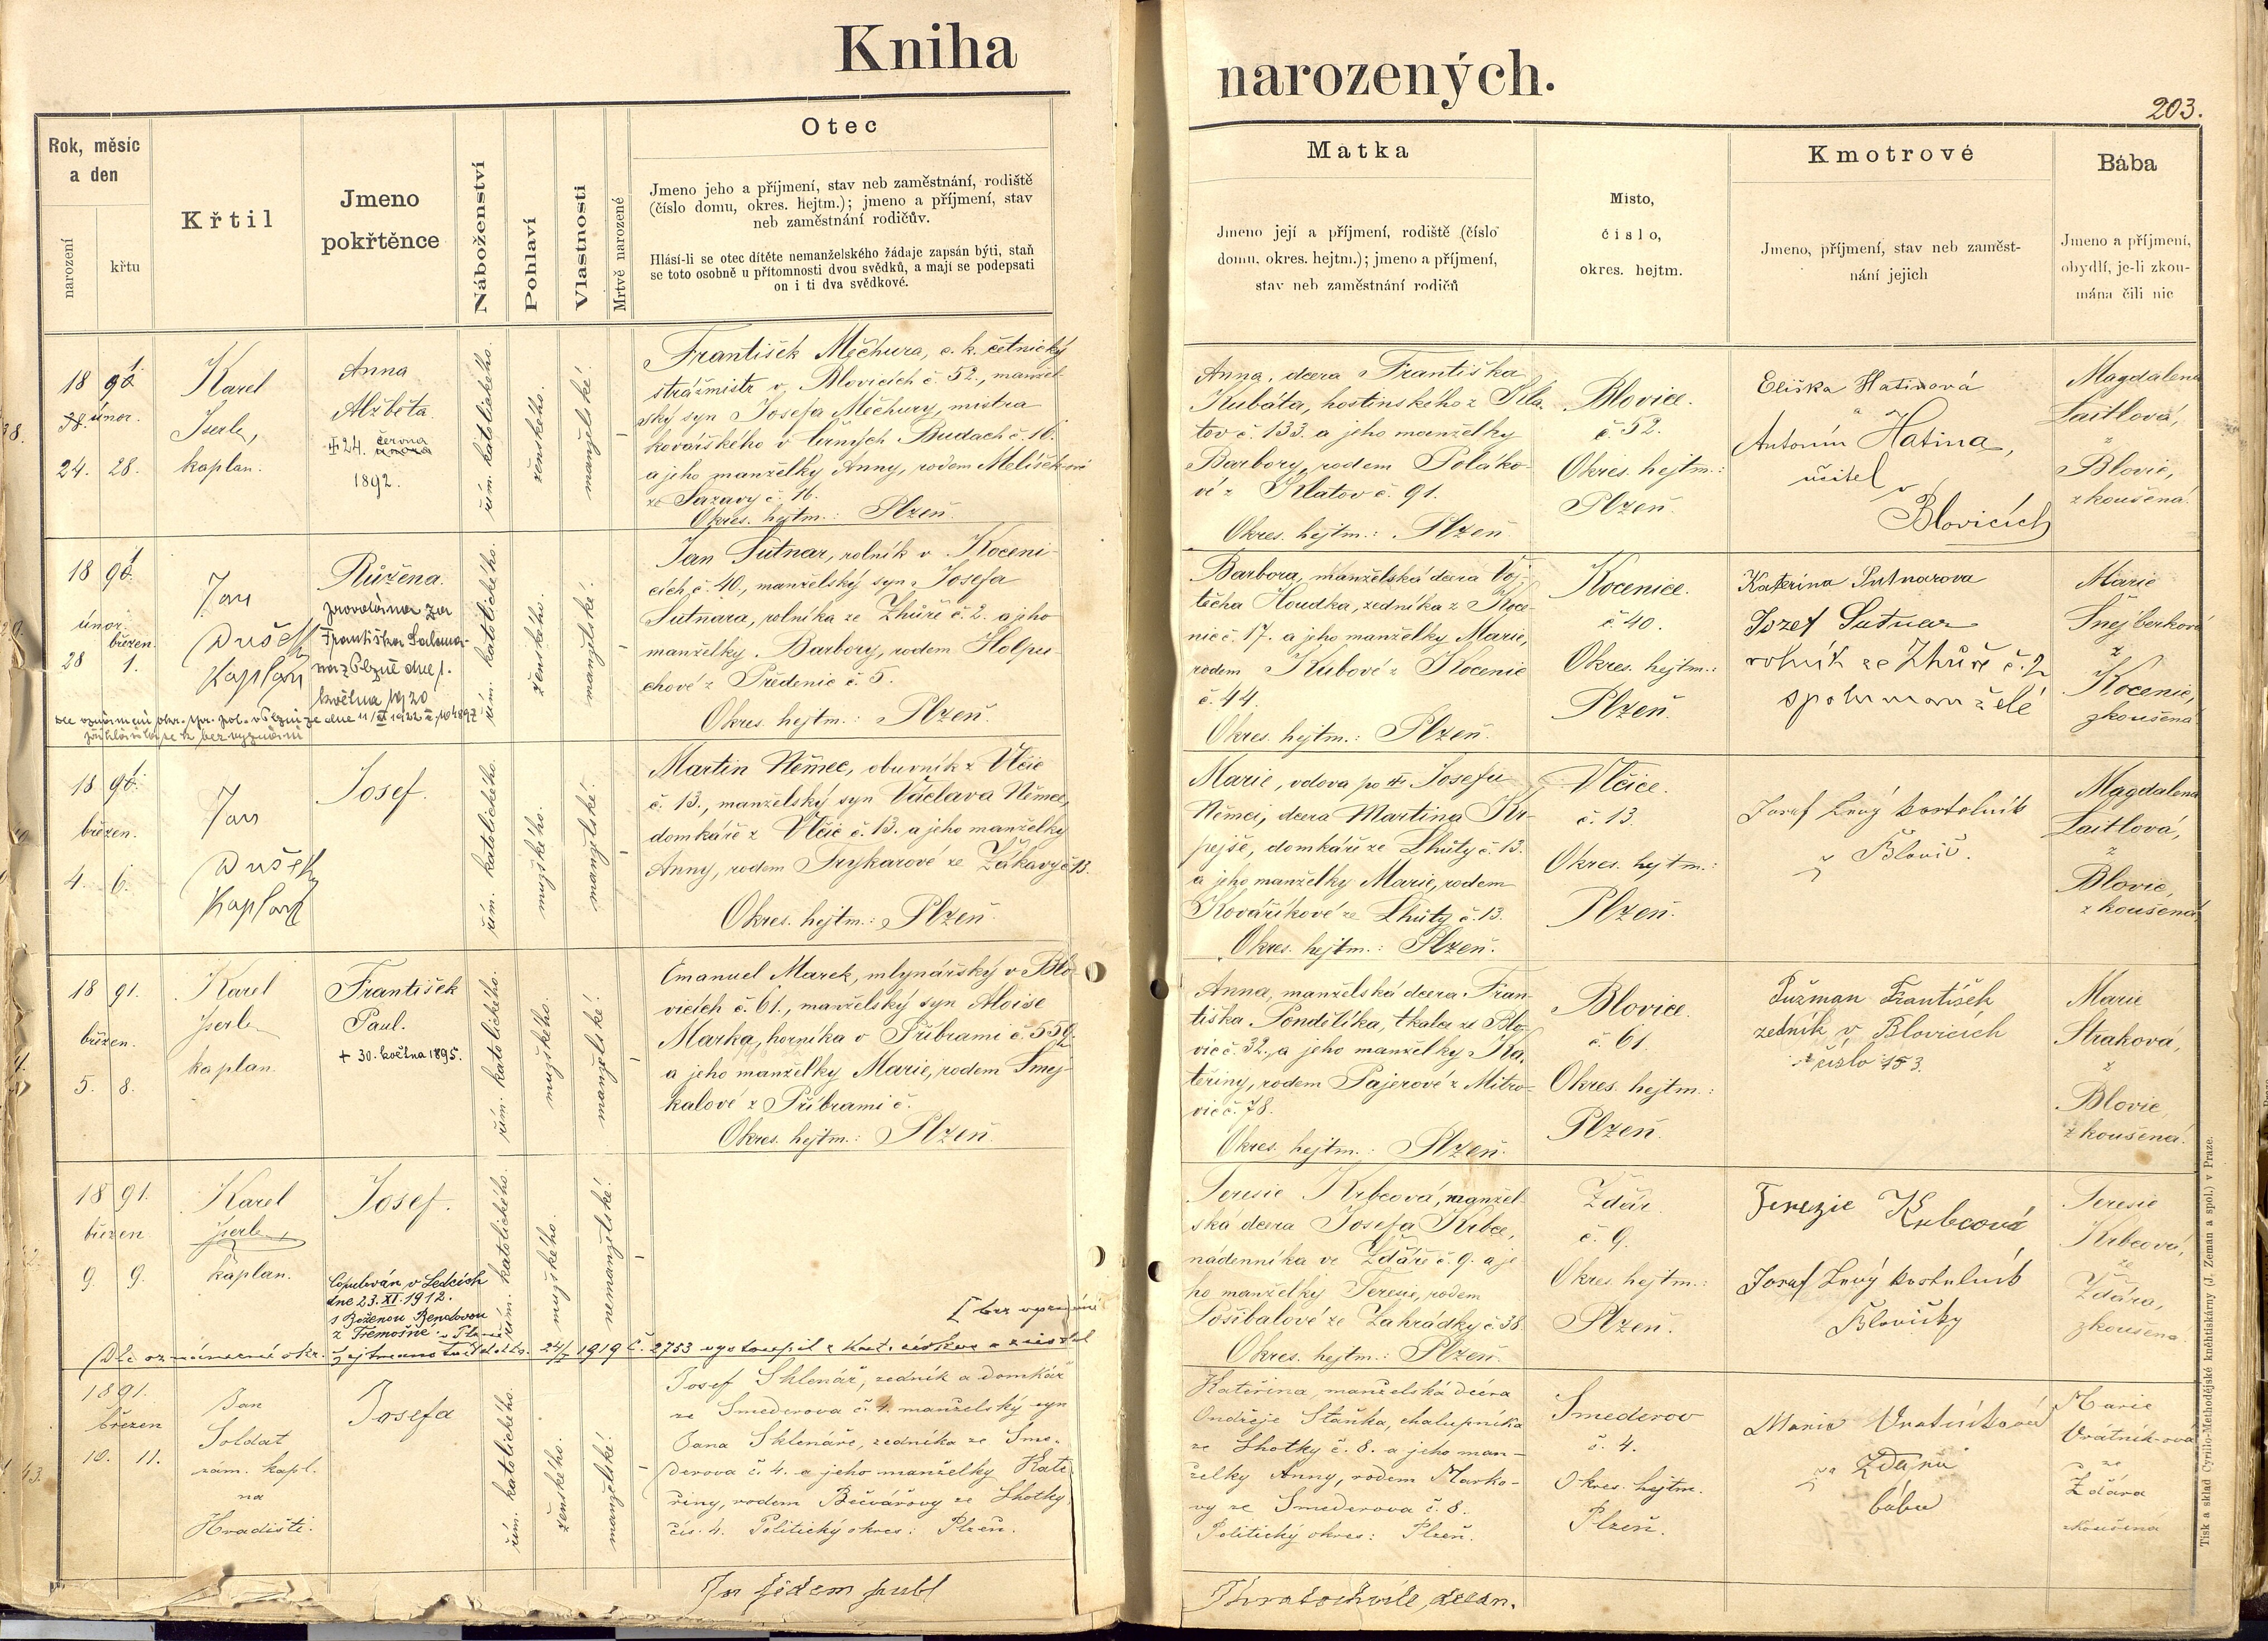 Kniha
narozených.
203.
Rok, měsíc
a den
narození
křtu
Křtil
Jmeno
pokřtěnce
Náboženství
Pohlaví
Vlastnosti
Mrtvě narozené
Otec
Jmeno jeho a příjmení, stav neb zaměstnání, rodiště
(číslo domu, okres. hejtm.); jmeno a příjmení, stav
neb zaměstnání rodičův.
Hlásí-li se otec dítěte nemanželského žádaje zapsán býti, staň
se toto osobně u přítomnosti dvou svědků, a mají se podepsati
on i ti dva svědkové.
Matka
Jmeno její a příjmení, rodiště (číslo
domu, okres. hejtm.); jmeno a příjmení,
stav neb zaměstnání rodičů
Místo,
číslo,
okres. hejtm.
Kmotrové
Jmeno, příjmení, stav neb zaměst-
nání jejich
Bába
Jmeno a příjmení,
obydlí, je-li zkou-
mána čili nic
18 91
únor.
24. 28.
Karel
Iserle,
kaplan.
Anna
Alžběta.
24. června
1892.
řím. katolického.
ženského.
manželské.
František Měchura, c. k. četnický
strážmistr v Blovicích č. 52., manžel-
ský syn Josefa Měchury, mistra
kovářského v Budách č. 16.
a jeho manželky Anny, rodem
ze Sázavy č. 16.
Okres. hejtm.: Plzeň.
Anna, dcera Františka
Kubáta, hostinského z Kla-
tov č. 133. a jeho manželky
Barbory, rodem Poláko-
vé z Klatov č. 91.
Okres. hejtm.: Plzeň
Blovice.
č. 52.
Okres. hejtm.:
Plzeň.
Eliška Hatinová
Antonín Hatina,
učitel
v
Blovicích
Magdalena
Laitlová,
z
Blovic,
zkoušená.
18 91.
únor.
březen.
28 1.
Jan
Dušek
Kaplan
Růžena.
provdána za
Františka
z Plzně dne 1.
května 1920
řím. katolického.
ženského.
manželské.
Jan Sutnar, rolník v Koceni-
cích č. 40., manželský syn Josefa
Sutnara, rolníka ze Zhůře č. 2. a jeho
manželky Barbory, rodem Holpu-
chové z Předenic č. 5.
Okres. hejtm.: Plzeň.
Barbora, manželská dcera Voj-
těcha Houdka, zedníka z Koce-
nic č. 17. a jeho manželky Marie,
rodem Kubové z Kocenic
č. 44.
Okres. hejtm.: Plzeň.
Kocenice.
č. 40.
Okres. hejtm.:
Plzeň.
Kateřina Sutnarova
Jozef Sutnar
rolník ze Zhůře č. 2
spolu manželé
Marie
Šnejberková
z
Kocenic,
zkoušená
18 91.
březen.
4. 6.
Jan
Dušek
Kaplan
Josef.
řím. katolického.
mužského.
manželské.
Martin Němec, obuvník z Vlčic
č. 13., manželský syn Václava Němce,
domkáře z Vlčic č. 13. a jeho manželky
Anny, rodem Frykarové ze Žákavy č. 13.
Okres. hejtm.: Plzeň.
Marie, vdova po Josefu
Němci, dcera Martina Kr-
pejše, domkáře ze Lhůty č. 13.
a jeho manželky Marie, rodem
Kováříkové ze Lhůty č. 13.
Okres. hejtm.: Plzeň.
Vlčice.
č. 13.
Okres. hejtm.:
Plzeň.
Josef Levý kostelník
z Blovic.
Magdalena
Laitlová,
z
Blovic,
zkoušená.
18 91.
březen.
5. 8.
Karel
Iserle
kaplan.
František
Paul.
+ 30. května 1895.
řím. katolického.
mužského.
manželské.
Emanuel Marek, mlynářský v Blo-
vicích č. 61., manželský syn Aloise
Marka, horníka v Příbrami č. 550.
a jeho manželky Marie, rodem Smej-
kalové z Příbrami č.
Okres. hejtm.: Plzeň.
Anna, manželská dcera Fran-
tiška Pondělíka, tkalce ze Blo-
vic č. 32., a jeho manželky Ka-
teřiny, rodem Pajerové z Mitro-
vic č. 78.
Okres. hejtm.: Plzeň.
Blovice.
č. 61.
Okres. hejtm.:
Plzeň.
Pužman František
zedník v Blovicích
číslo 153.
Marie
Straková,
z
Blovic,
zkoušená.
18 91.
březen
9. 9.
Karel
Iserle,
kaplan.
Josef.
Copulován v Ledcích
dne 23. XI. 1912.
s Boženou Bendovou
z Třemošné
řím. katolického.
mužského.
nemanželské.
[bez vyznání
Dle oznámení okr. hejtmanství 24/I 1919 č. 2753 vystoupil z kat. církve a zůstal
Teresie Krbcová, manžel-
ská dcera Josefa Krbce,
nádenníka ve Ždáře č. 9. a je-
ho manželky Teresie, rodem
Pošíbalové ze Zahrádky č. 38.
Okres. hejtm.: Plzeň.
Ždár.
č. 9.
Okres. hejtm.:
Plzeň.
Terezie Krbcová
Josef Levý kostelník
Blovický
Teresie
Krbcová,
ze
Ždára,
zkoušená.
1891.
březen
10. 11.
Jan
Soldat
zám. kapl.
na
Hradišti.
Josefa
řím. katolického.
ženského.
manželské.
Josef Sklenář, zedník a domkář
ze Smederova č. 4. manželský syn
Jana Sklenáře, zedníka ze Sme-
derova č. 4. a jeho manželky Kate-
řiny, rodem Bečvářovy ze Lhotky
čís. 4. Politický okres: Plzeň.
Kateřina, manželská dcera
Ondřeje Staňka, chalupníka
ze Lhotky č. 8. a jeho man-
želky Anny, rodem Marko-
vy ze Smederova č. 8.
Politický okres: Plzeň.
Smederov
č. 4.
Okres. hejtm.
Plzeň.
Marie Vratníková
ze Ždáru
bába
Marie
Vrátníková
ze
Ždára
zkoušená
In fidem publ
Chvatochvíle, děkan.
Tisk a sklad Cyrillo-Methodějské knihtiskárny (J. Zeman a spol.) v Praze.